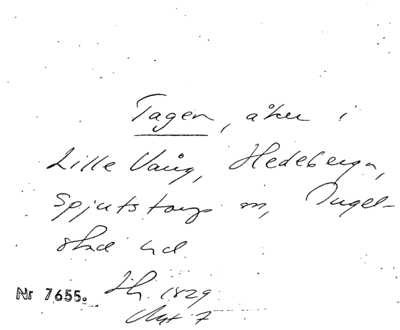 Tagen, åker i
Lille Vång, Hedeberga,
Spjutstorps sn, Ingel-
stad hd
Nr 7655. Lh. 1829
Akt 7